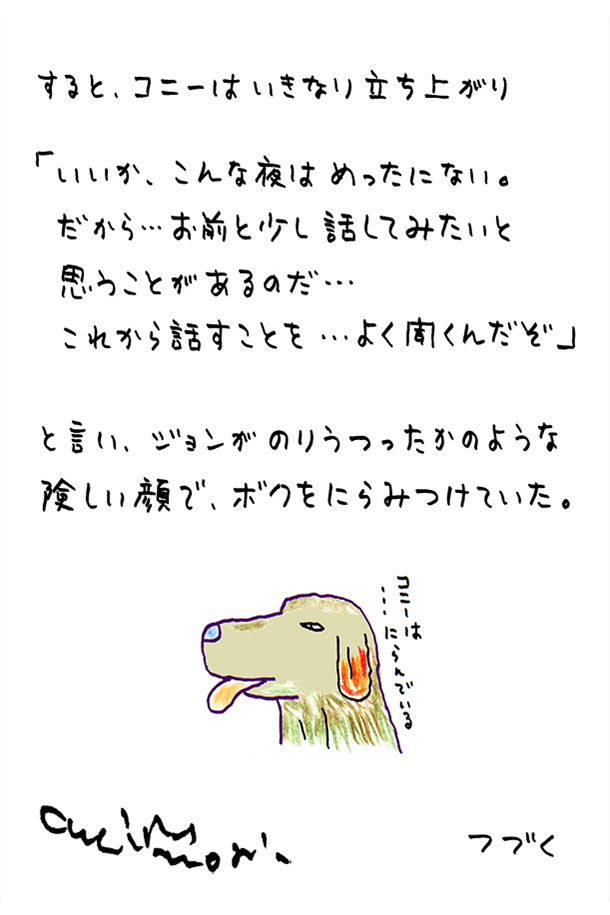 すると、コニーはいきなり立ち上がり
「いいか、こんな夜はめったにない。
だから…お前と少し話してみたいと
思うことがあるのだ…
これから話すことを…よく聞くんだぞ」
と言い、ジョンがのりうつったかのような
険しい顔で、ボクをにらみつけていた。
コニーは
…にらんでいる
つづく